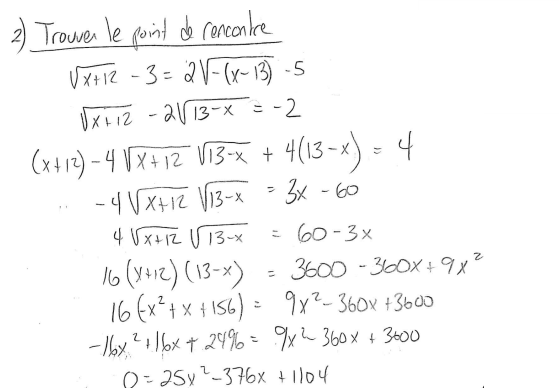 2) Trouver le point de rencontre
√(x+12) - 3 = 2√(-(x-13)) - 5
√(x+12) - 2√(13-x) = -2
(x+12) - 4√(x+12) √(13-x) + 4(13-x) = 4
-4√(x+12) √(13-x) = 3x - 60
4√(x+12) √(13-x) = 60 - 3x
16(x+12)(13-x) = 3600 - 360x + 9x²
16(-x² + x + 156) = 9x² - 360x + 3600
-16x² + 16x + 2496 = 9x² - 360x + 3600
0 = 25x² - 376x + 1104